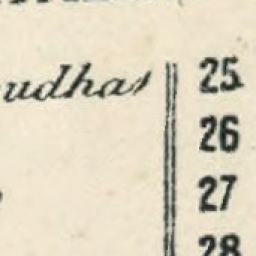 udhas 25
26
27
28